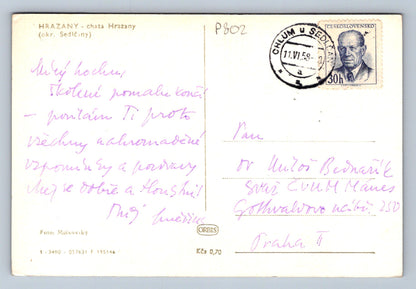 HRAZANY - chata Hrazany
(okr. Sedlčany)
P802
CHLUM u SEDLČAN
11.VI.58-
a
ČESKOSLOVENSKO
30h
Milý hochu,
školení pomalu končí
- posílám Ti proto
všechny nahromaděné
vzpomínky a pozdravy
Měj se dobře a
Tvůj
Pan
Dr Miloš Bednařík
Svaz ČVUM Mánes
Gottwaldovo nábř. 250
Praha II
ORBIS
Kčs 0,70